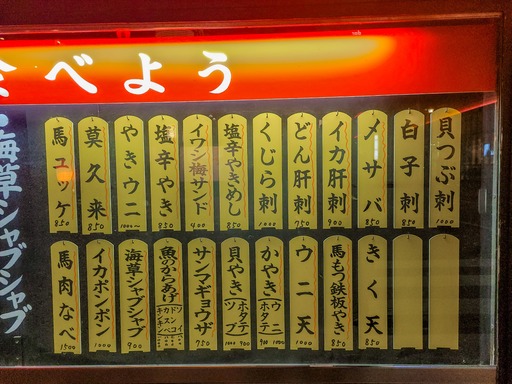 べよう
海草シャブシャブ
貝つぶ刺 1000
白子刺 850
メサバ 850
イカ肝刺 900
どん肝刺 750
くじら刺 1000
塩辛やきめし 850
イワシ梅サンド 400
塩辛やき 850
やきウニ 1000~
莫久来 850
馬ユッケ 850
きく天 850
馬もつ鉄板やき 850
ウニ天 1000
かやき ウニ ホタテ 900 1000
貝やき ホタテ ツブ 1000 900
サンマギョウザ 750
魚のからあげ
海草シャブシャブ 900
イカポンポン 1000
馬肉なべ 1500